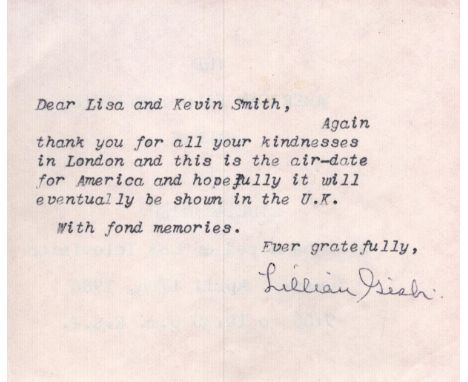 Dear Lisa and Kevin Smith,
Again
thank you for all your kindnesses
in London and this is the air-date
for America and hopefully it will
eventually be shown in the U.K.
With fond memories.
Ever gratefully,
Lillian Gish.